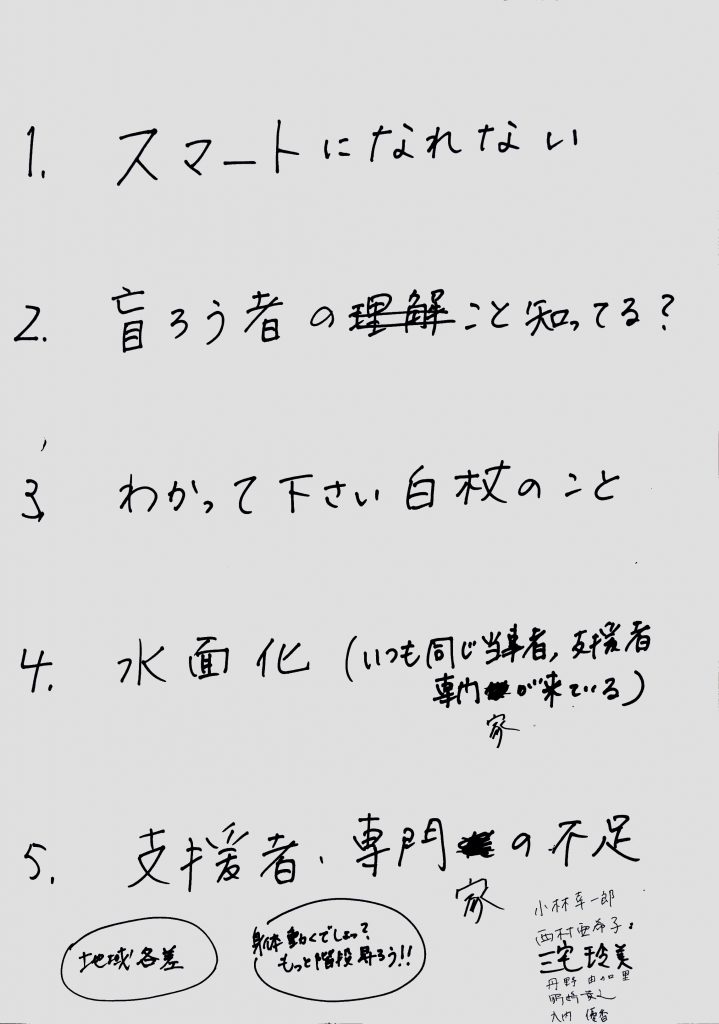 1. スマートになれない
2. 盲ろう者の理解こと知ってる?
3. わかって下さい白杖のこと
4. 水面化(いつも同じ当事者,支援者
専門家が来ている)
5. 支援者・専門家の不足
地域各差
身体動くでしょっ?
もっと階段昇ろう!!
小林幸一郎
西村亜希子
三宅玲美
丹野由加里
大内優香